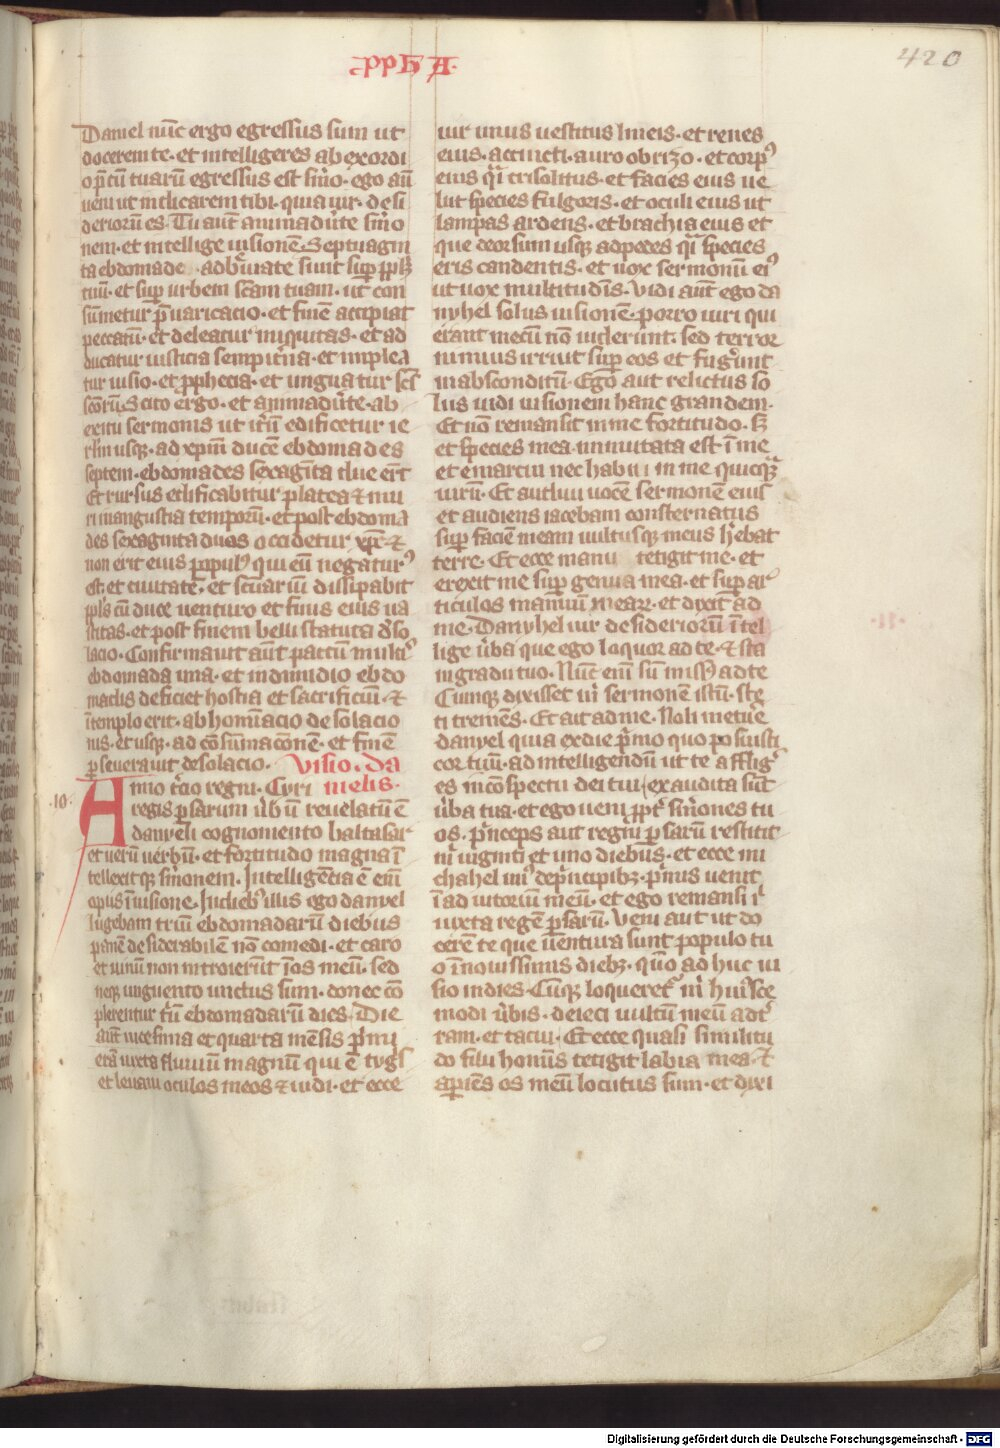 ꝓph A
420
Daniel nūc ergo egressus sum ut
docerem te · et intelligeres ab exordi
o p̄cū tuarū egressus est s̄mo · ego aū
ueni ut indicarem tibi · quia uir · desi
deriorū es · Tu aūt animadūte s̄mo
nem · et intellige uisionē · Septuagin
ta ebdomade adbr̄uiate sunt suꝑ ppl̄m
tuū · et suꝑ urbem sc̄am tuam · ut con
sūmetur p̄uaricacio · et finē accipiat
peccatū · et deleatur iniquitas · et ad
ducatur iusticia sempit̄na · et implea
tur uisio · et ꝓphecia · et unguatur sc̄s
sc̄orū Scito ergo · et animadūte · ab
exitu sermonis ut it̄ū edificetur ie
rl̄m usqꝫ · ad xp̄m ducē ebdomades
septem · ebdomades sexaginta due er̄t
Et rursus edificabitur platea ⁊ mu
ri in angustia temporū · et post ebdoma
des sexaginta duos occidetur xp̄c ⁊
non erit eius populꝰ qui eū negaturꝰ
est · et ciuitatē · et sc̄uariū dissipabit
ppl̄s cū duce uenturo et finis eius ua
stitas · et post finem belli statuta d̄so
lacio · Confirmauit aūt pactū multꝭ
ebdomada una · et in dimidio ebdo
madis deficiet hostia et sacrificiū · ⁊
ī templo erit · abhomīacio desolacio
nis · et usqꝫ · ad cōsūmacōnē · et finē
ꝑseuerauit desolacio · Visio · da
nielis ·
· 10 · Anno t̄cio regni · Cyri
regis ꝑsarum ūbū reuelatū ē
danyeli cognomento baltasar
et uerū uerbū · et fortitudo magna ī
tellexitqꝫ s̄monem · Intelligētia ē em̄
opus ī uisione · In diebꝰ illis ego danyel
lugebam triū ebdomadarū diebus
panē desiderabilē nō comedi · et caro
et uinū non introierūt ī os meū · sed
neqꝫ unguento unctus sum · donec cō
plerentur t̄ū ebdomadarū dies · Die
aūt uicesima et quarta mēsis p̄mi
erā iuxta fluuiū magnū qui ē tygꝭs
et leuaui oculos meos ⁊ uidi · et ecce
uir unus uestitus lineis · et renes
eius · accincti · auro obrizo · et corpꝰ
eius q̄i crisolitus · et facies eius ue
lut species fulgoris · et oculi eius ut
lampas ardens · et brachia eius et
que deorsum usqꝫ ad pedes q̄i species
eris candentis · et uox sermonū eiꝰ
ut uox multitudīs · Vidi aūt ego da
nyhel solus uisionē · porro uiri qui
erant mecū nō uiderunt · sed terror
nimius irruit suꝑ eos et fuger̄unt
in absconditū · Ego aūt relictus so
lus uidi uisionem hanc grandem ·
Et nō remansit in me fortitudo · sꝫ
et species mea inmutata est ī me
et emarcui nec habui in me quicqͣ
uirū · Et audiui uocē sermonē eius
et audiens iacebam consternatus
suꝑ faciē meam uultusqꝫ meus h̄ebat
terre · Et ecce manu tetigit me · et
erexit me suꝑ genua mea · et suꝑ ar
ticulos manuū mear̄ · et dixit ad
me · Danyhel uir desideriorū ītel
lige ūba que ego loquor ad te · ⁊ sta
in gradu tuo · Nūc em̄ sū missꝰ ad te
Cumqꝫ dixisset m̄ sermonē istū · ste
ti tremēs · Et ait ad me · Noli metūe
danyel quia ex die p̄mo quo posuisti
cor tuū · ad intelligendū ut te afflig̓
es in cōspectu dei tui · exaudita sūt
ūba tua · et ego ueni ꝓpt̓ s̄mones tu
os · p̄nceps aut regni ꝑsarū restitit
m̄ uiginti et uno diebus · et ecce mi
chahel unꝰ de p̄ncipibꝫ · p̄mus uenit
ī adiutoriū meū · et ego remansi iꝭ
iuxta regē ꝑsarū · Veni aut ut do
cerē te que uētura sunt populo tu
o ī nouissimis diebꝫ · qm̄o ad huc ui
sio in dies · Cūqꝫ loqueret̄ m̄ huiꝰsce
modi ūbis · deieci uultū meū ad t̓
ram · et tacui · Et ecce quasi similitu
do filii homīis tetigit labia mea · ⁊
aꝑiēs os meū locutus sum · et dixi
Digitalisierung gefördert durch die Deutsche Forschungsgemeinschaft - DFG